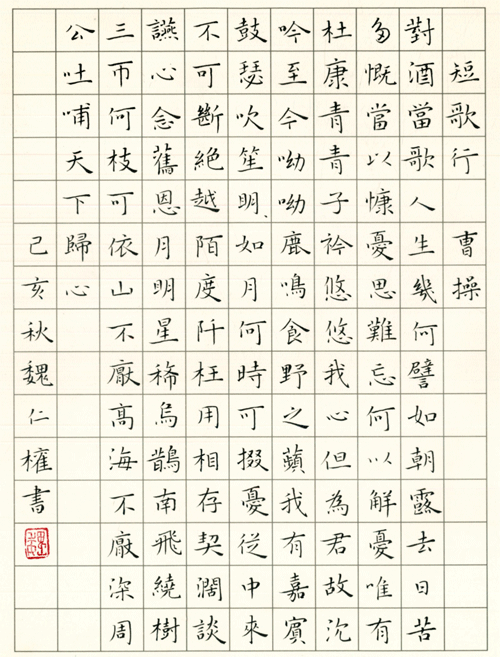 短歌行 曹操
對酒當歌人生幾何譬如朝露去日苦
多慨當以慷憂思難忘何以解憂唯有
杜康青青子衿悠悠我心但為君故沉
吟至今呦呦鹿鳴食野之蘋我有嘉賓
鼓瑟吹笙明、如月何時可掇憂從中來
不可斷絕越陌度阡枉用相存契闊談
讌心念舊恩月明星稀烏鵲南飛繞樹
三匝何枝可依山不厭高海不厭深周
公吐哺天下歸心
己亥秋魏仁書